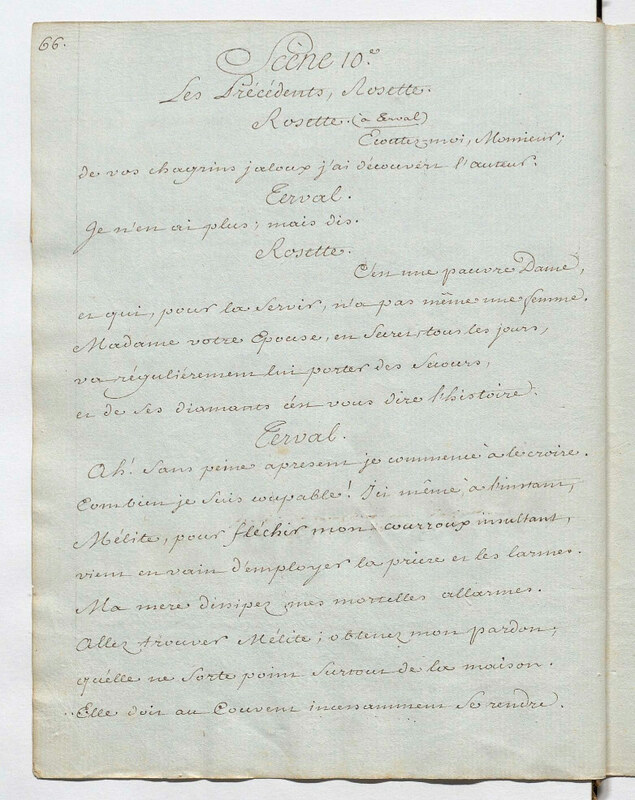 66.
Scène 10.e
Les Précédents, Rosette.
Rosette. (à Terval)
Ecoutez moi, Monsieur;
de vos chagrins jaloux j'ai découvert l'auteur.
Terval.
Je n'en ai plus; mais dis.
Rosette.
C'en une pauvre Dame,
et qui, pour la servir, n'a pas même une femme.
Madame votre Epouse, en Secret, tous les jours,
va régulièrement lui porter des Secours,
et de ses diamants c'en vous dire l'histoire.
Terval.
Ah! Sans peine apresent je commence à le croire.
Combien je suis coupable! Ici même, à l'instant,
Mélite, pour fléchir mon courroux insultant,
vient en vain d'employer la priere et les larmes.
Ma mere dissipez mes mortelles allarmes.
Allez trouver Mélite; obtenez mon pardon;
qu'élle ne Sorte point Surtout de la maison.
Elle doit au Couvent incessamment se rendre.